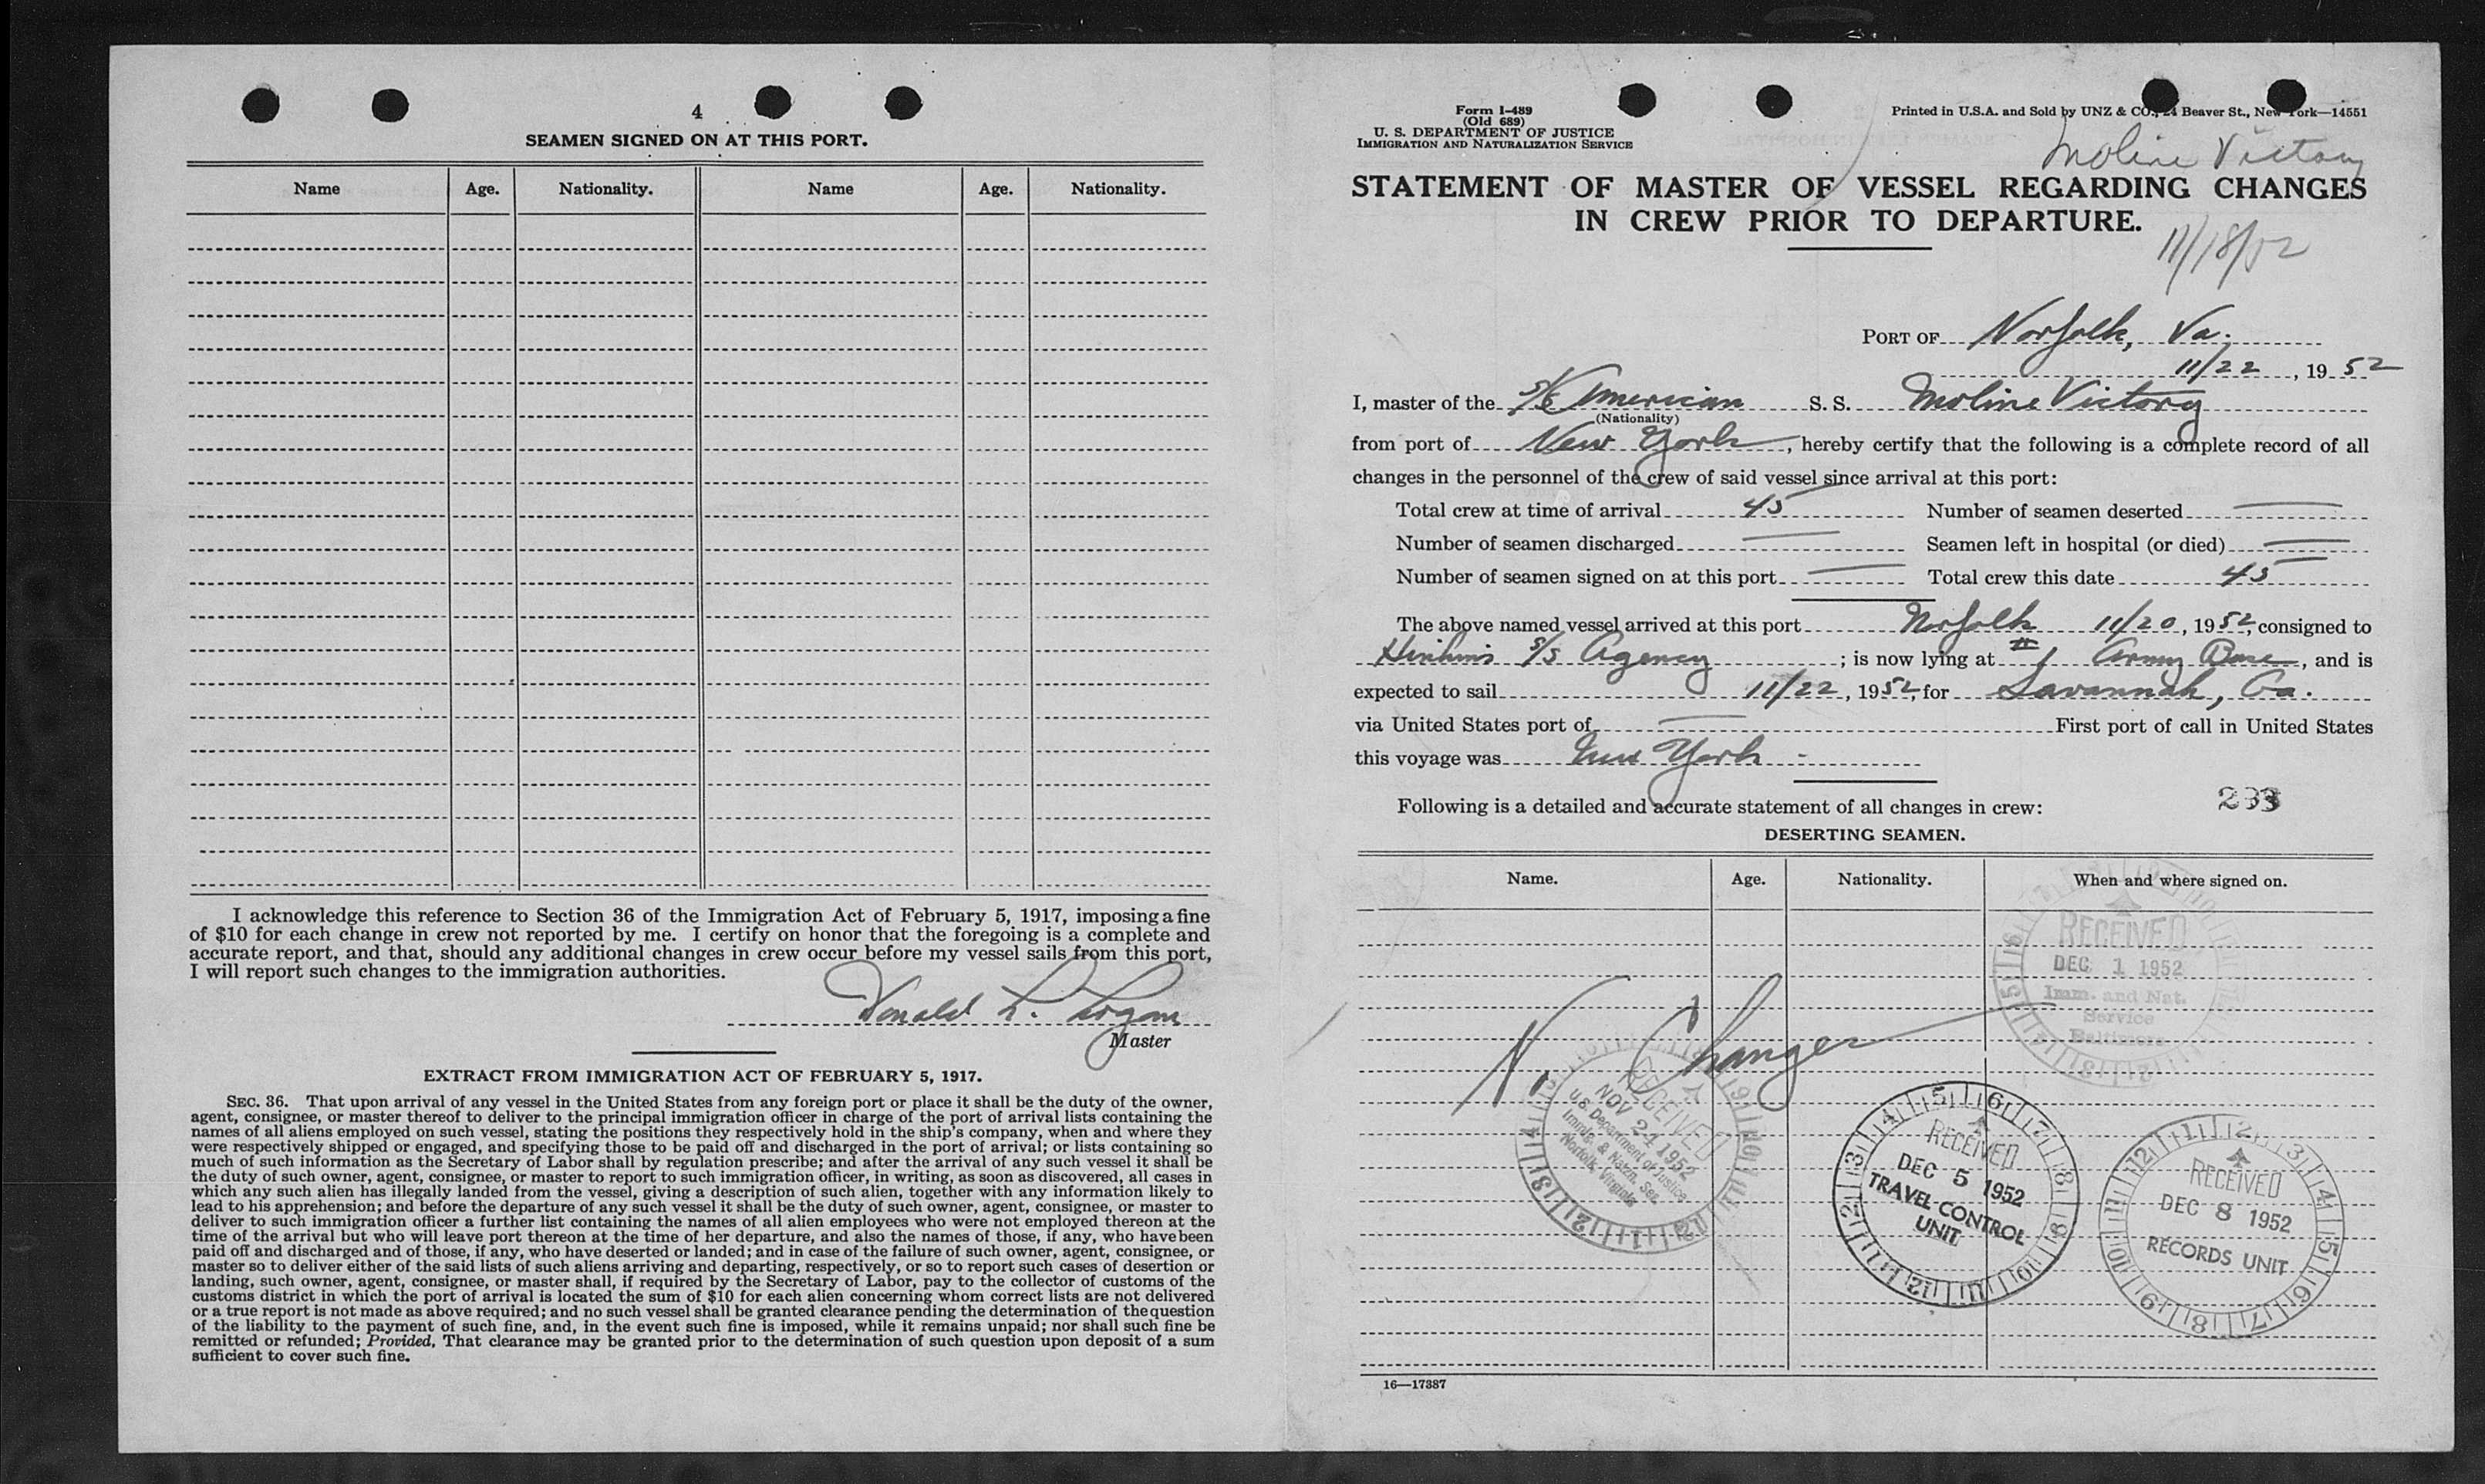 4
SEAMEN SIGNED ON AT THIS PORT.
Name Age. Nationality. Name Age. Nationality.
I acknowledge this reference to Section 36 of the Immigration Act of February 5, 1917, imposing a fine
of $10 for each change in crew not reported by me. I certify on honor that the foregoing is a complete and
accurate report, and that, should any additional changes in crew occur before my vessel sails from this port,
I will report such changes to the immigration authorities.
Donald L. Logan
Master
EXTRACT FROM IMMIGRATION ACT OF FEBRUARY 5, 1917.
SEC. 36. That upon arrival of any vessel in the United States from any foreign port or place it shall be the duty of the owner,
agent, consignee, or master thereof to deliver to the principal immigration officer in charge of the port of arrival lists containing the
names of all aliens employed on such vessel, stating the positions they respectively hold in the ship's company, when and where they
were respectively shipped or engaged, and specifying those to be paid off and discharged in the port of arrival; or lists containing so
much of such information as the Secretary of Labor shall by regulation prescribe; and after the arrival of any such vessel it shall be
the duty of such owner, agent, consignee, or master to report to such immigration officer, in writing, as soon as discovered, all cases in
which any such alien has illegally landed from the vessel, giving a description of such alien, together with any information likely to
lead to his apprehension; and before the departure of any such vessel it shall be the duty of such owner, agent, consignee, or master to
deliver to such immigration officer a further list containing the names of all alien employees who were not employed thereon at the
time of the arrival but who will leave port thereon at the time of her departure, and also the names of those, if any, who have been
paid off and discharged and of those, if any, who have deserted or landed; and in case of the failure of such owner, agent, consignee, or
master so to deliver either of the said lists of such aliens arriving and departing, respectively, or so to report such cases of desertion or
landing, such owner, agent, consignee, or master shall, if required by the Secretary of Labor, pay to the collector of customs of the
customs district in which the port of arrival is located the sum of $10 for each alien concerning whom correct lists are not delivered
or a true report is not made as above required; and no such vessel shall be granted clearance pending the determination of the question
of the liability to the payment of such fine, and, in the event such fine is imposed, while it remains unpaid; nor shall such fine be
remitted or refunded; Provided, That clearance may be granted prior to the determination of such question upon deposit of a sum
sufficient to cover such fine.
Form I-489
(Old 689)
U. S. DEPARTMENT OF JUSTICE
IMMIGRATION AND NATURALIZATION SERVICE
Printed in U.S.A. and Sold by UNZ & CO., 24 Beaver St., New York—14551
Moline Victory
STATEMENT OF MASTER OF VESSEL REGARDING CHANGES
IN CREW PRIOR TO DEPARTURE.
11/18/52
PORT OF Norfolk, Va.
11/22, 1952
I, master of the American S. S. Moline Victory
(Nationality)
from port of New York, hereby certify that the following is a complete record of all
changes in the personnel of the crew of said vessel since arrival at this port:
Total crew at time of arrival 45 Number of seamen deserted —
Number of seamen discharged — Seamen left in hospital (or died) —
Number of seamen signed on at this port — Total crew this date 45
The above named vessel arrived at this port Norfolk 11/20, 1952, consigned to
S/S Agency; is now lying at # 1 Army Base, and is
expected to sail 11/22, 1952, for Savannah, Ga.
via United States port of — First port of call in United States
this voyage was New York -
Following is a detailed and accurate statement of all changes in crew:
DESERTING SEAMEN.
Name. Age. Nationality. When and where signed on.
RECEIVED
DEC 1 1952
Imm. and Nat.
Service
Baltimore
No Changes
RECEIVED
NOV 24 1952
U.S. Department of Justice
Immig. & Natzn. Ser.
Norfolk, Virginia
RECEIVED
DEC 5 1952
TRAVEL CONTROL
UNIT
RECEIVED
DEC 8 1952
RECORDS UNIT
16—17387